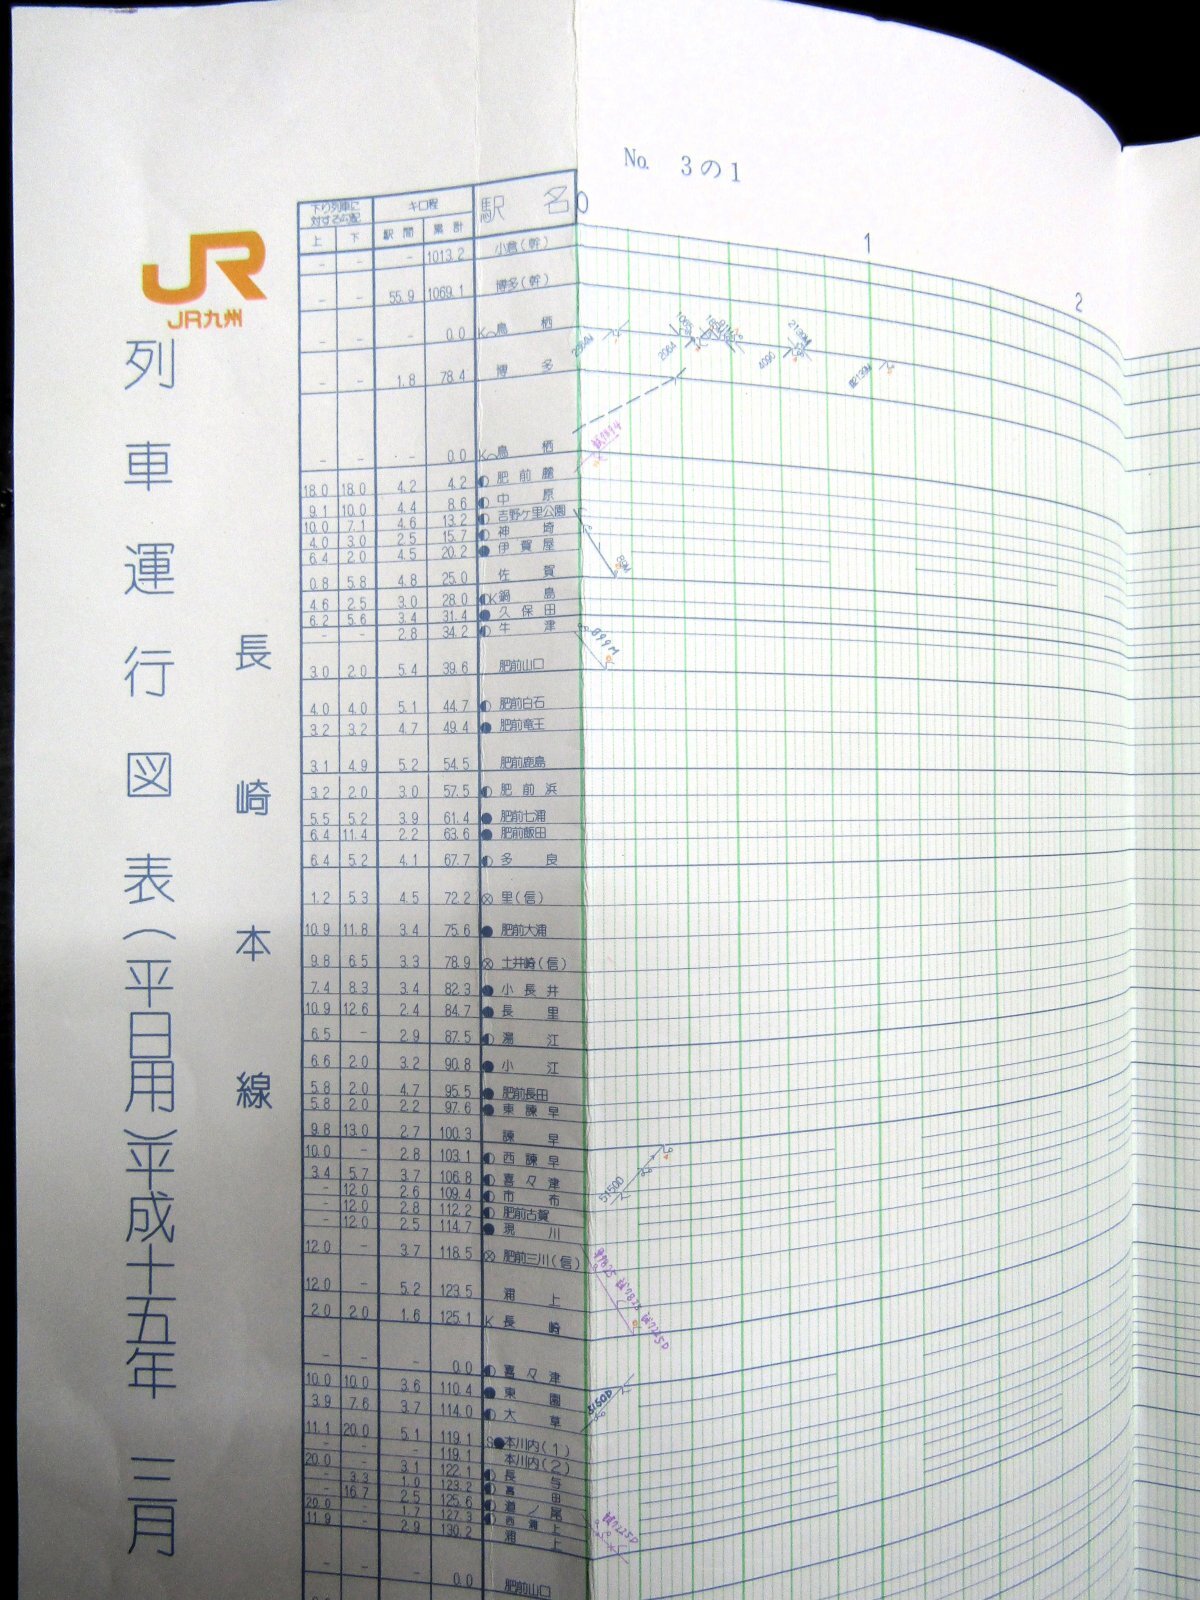 No. 3の1
JR
JR九州
列車運行図表(平日用)平成十五年 三月
長崎本線
下り列車に対する勾配 キロ程 駅名
上 下 駅間 累計
0 1 2
- - - 1013.2 小倉(幹)
- - 55.9 1069.1 博多(幹)
- - - 0.0 K 鳥栖
- - 1.8 78.4 博多
- - - 0.0 K 鳥栖
18.0 18.0 4.2 4.2 肥前麓
9.1 10.0 4.4 8.6 中原
10.0 7.1 4.6 13.2 吉野ヶ里公園
4.0 3.0 2.5 15.7 神埼
6.4 2.0 4.5 20.2 伊賀屋
0.8 5.8 4.8 25.0 佐賀
4.6 2.5 3.0 28.0 K 鍋島
6.2 5.6 3.4 31.4 久保田
- - 2.8 34.2 牛津
3.0 2.0 5.4 39.6 肥前山口
4.0 4.0 5.1 44.7 肥前白石
3.2 3.2 4.7 49.4 肥前竜王
3.1 4.9 5.2 54.5 肥前鹿島
3.2 2.0 3.0 57.5 肥前浜
5.5 5.2 3.9 61.4 肥前七浦
6.4 11.4 2.2 63.6 肥前飯田
6.4 5.2 4.1 67.7 多良
1.2 5.3 4.5 72.2 里(信)
10.9 11.8 3.4 75.6 肥前大浦
9.8 6.5 3.3 78.9 土井崎(信)
7.4 8.3 3.4 82.3 小長井
10.9 12.6 2.4 84.7 長里
6.5 - 2.9 87.5 湯江
6.6 2.0 3.2 90.8 小江
5.8 2.0 4.7 95.5 肥前長田
5.8 2.0 2.2 97.6 東諫早
9.8 13.0 2.7 100.3 諫早
10.0 - 2.8 103.1 西諫早
3.4 5.7 3.7 106.8 喜々津
- 12.0 2.6 109.4 市布
- 12.0 2.8 112.2 肥前古賀
- 12.0 2.5 114.7 現川
12.0 - 3.7 118.5 肥前三川(信)
12.0 - 5.2 123.5 浦上
2.0 2.0 1.6 125.1 K 長崎
- - - 0.0 喜々津
10.0 10.0 3.6 110.4 東園
3.9 7.6 3.7 114.0 大草
11.1 20.0 5.1 119.1 S 本川内(1)
- - - 119.1 本川内(2)
20.0 - 3.1 122.1 長与
- 3.3 1.0 123.2 高田
- 16.7 2.5 125.6 道ノ尾
20.0 - 1.7 127.3 西浦上
11.9 - 2.9 130.2 浦上
- - - 0.0 肥前山口
2064
2139M
4090
89M
899M
5150D
5150D